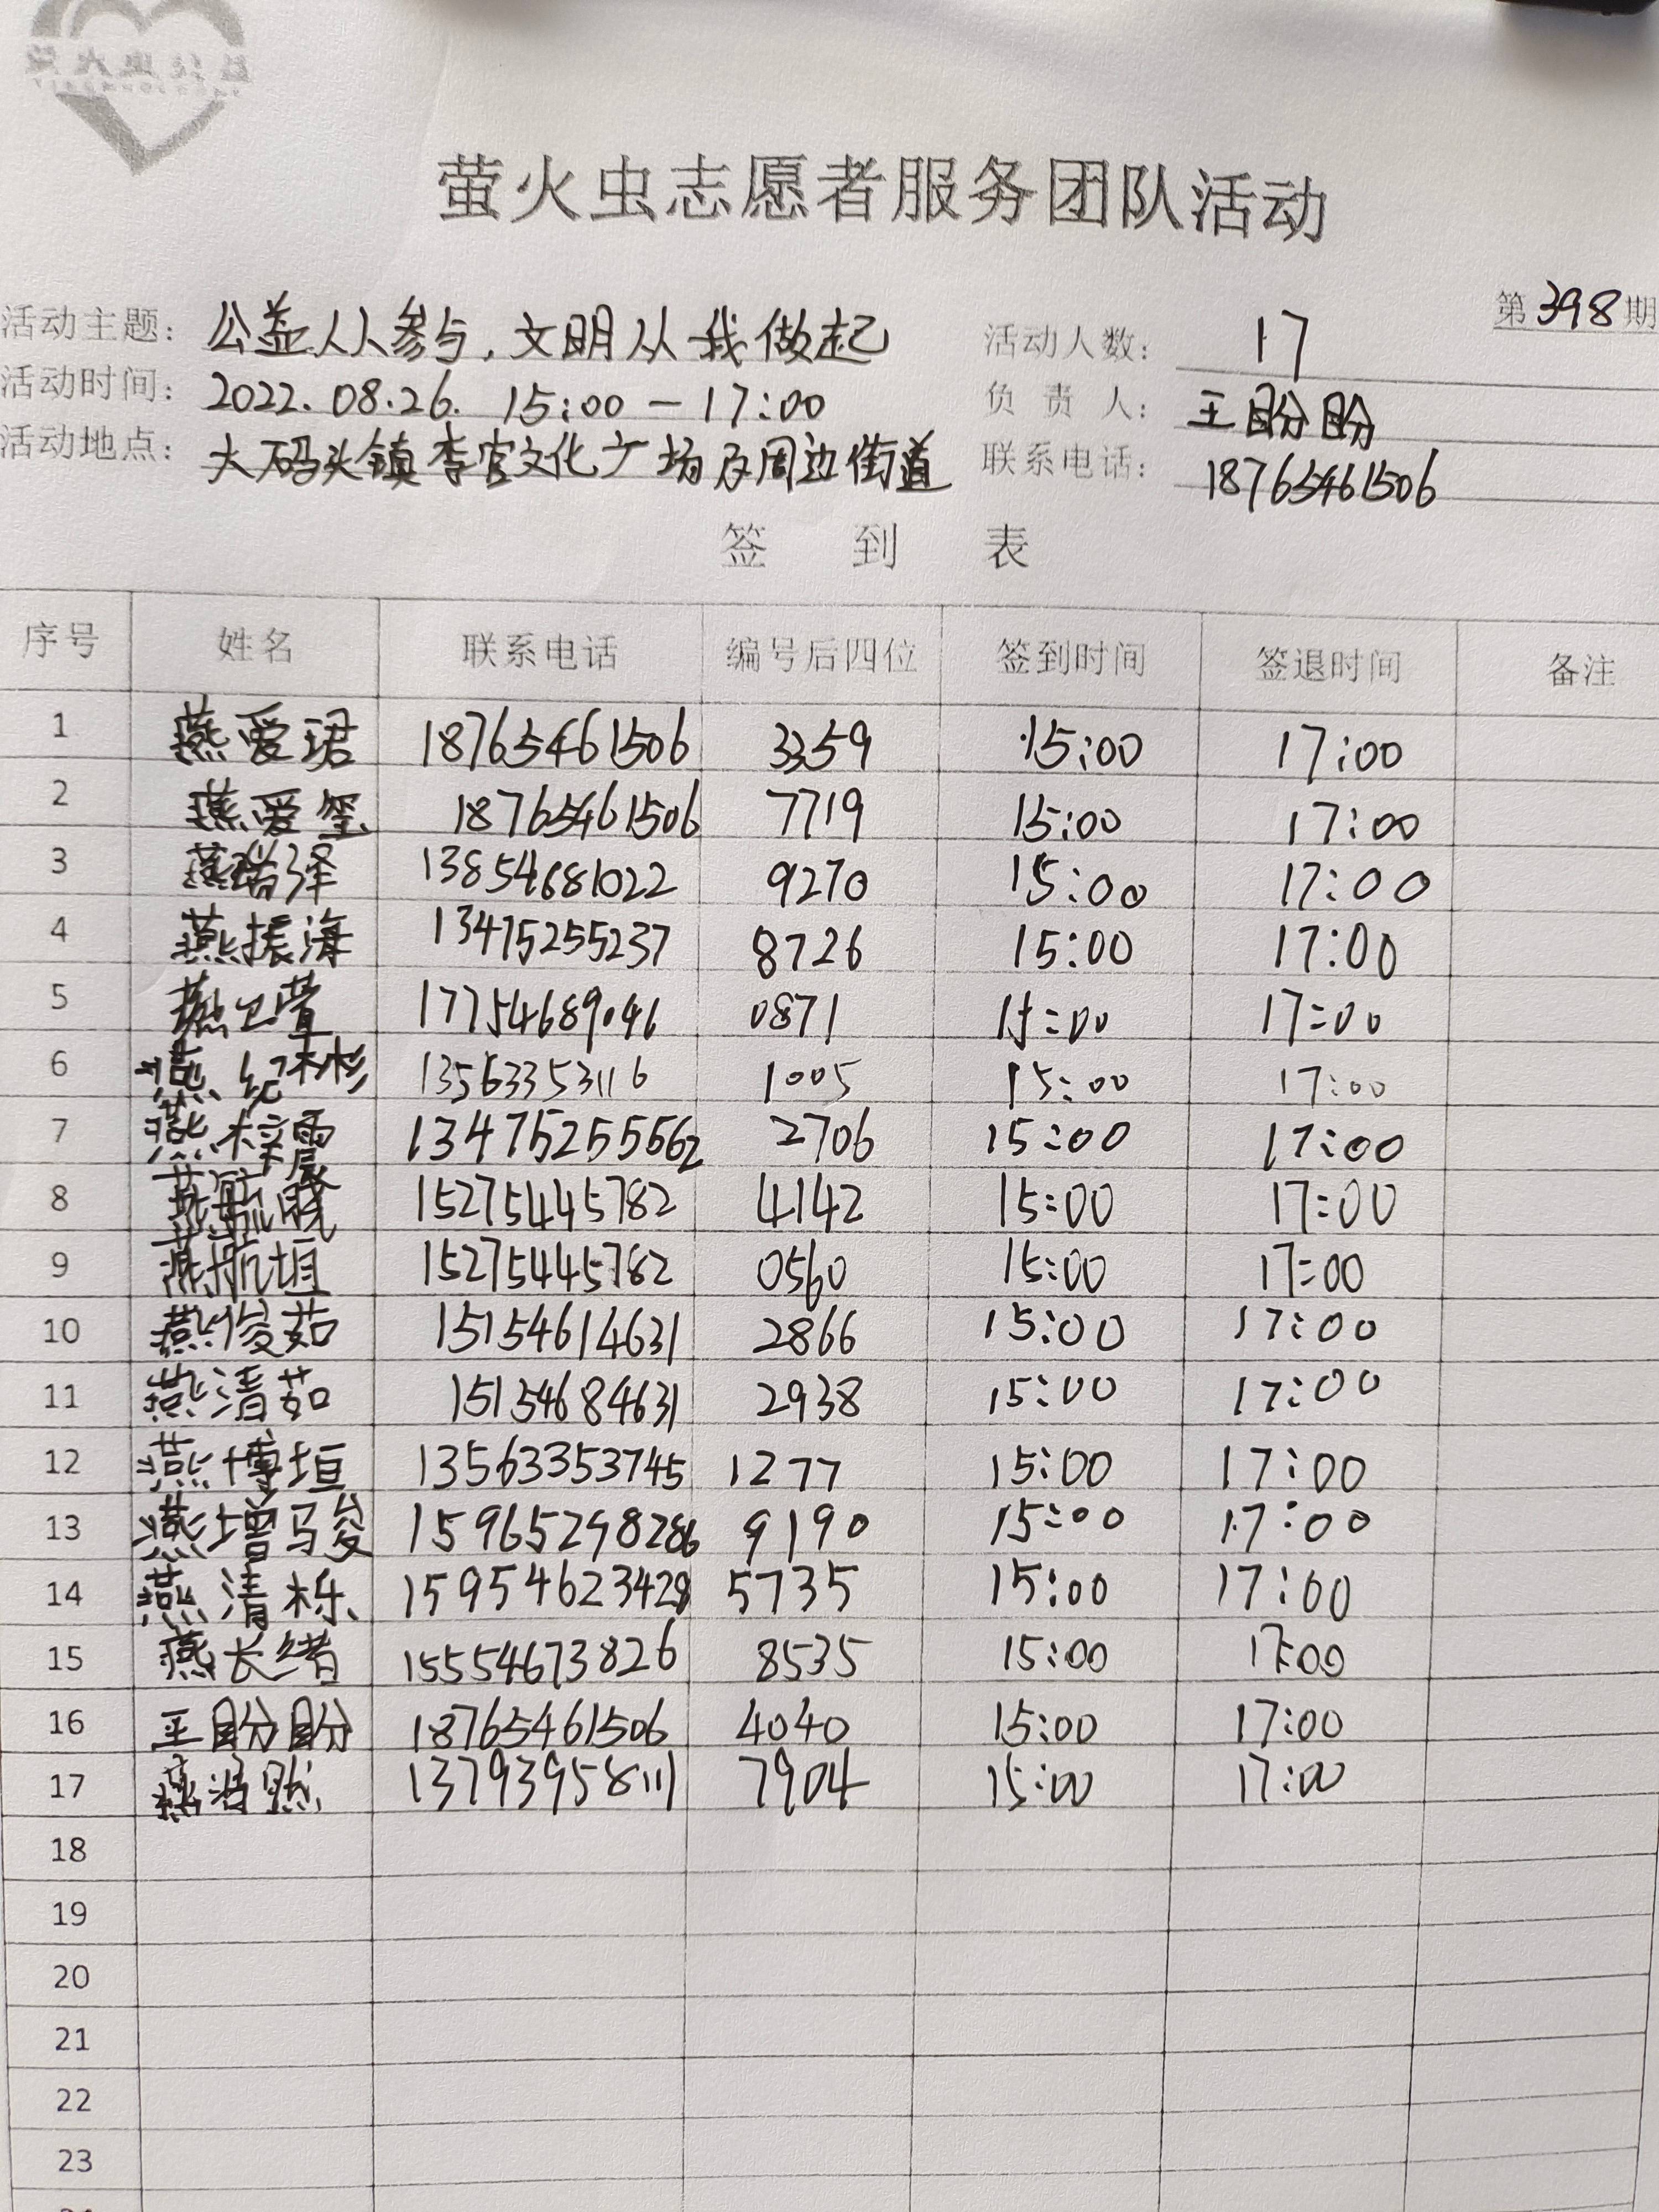 萤火虫志愿者服务团队活动
第398期
活动主题：公益人人参与，文明从我做起 活动人数：17
活动时间：2022.08.26. 15:00-17:00 负责人：王盼盼
活动地点：大码头镇李官文化广场及周边街道 联系电话：18765461506
签到表
序号 姓名 联系电话 编号后四位 签到时间 签退时间 备注
1 燕爱珺 18765461506 3359 15:00 17:00
2 燕爱玺 18765461506 7719 15:00 17:00
3 燕瑞泽 13854681022 9270 15:00 17:00
4 燕振海 13475255237 8726 15:00 17:00
5 燕 17754689046 0871 15:00 17:00
6 燕纪彬 13563353116 1005 15:00 17:00
7 燕梓震 13475255562 2706 15:00 17:00
8 燕航 15275445782 4142 15:00 17:00
9 燕航垣 15275445782 0560 15:00 17:00
10 燕俊茹 15154614631 2866 15:00 17:00
11 燕清茹 15154684631 2938 15:00 17:00
12 燕博垣 13563353745 1277 15:00 17:00
13 燕增骏 15965298286 9190 15:00 17:00
14 燕清栎 15954623428 5735 15:00 17:00
15 燕长绪 15554673826 8535 15:00 17:00
16 王盼盼 18765461506 4040 15:00 17:00
17 燕浩然 13793958111 7904 15:00 17:00
18
19
20
21
22
23